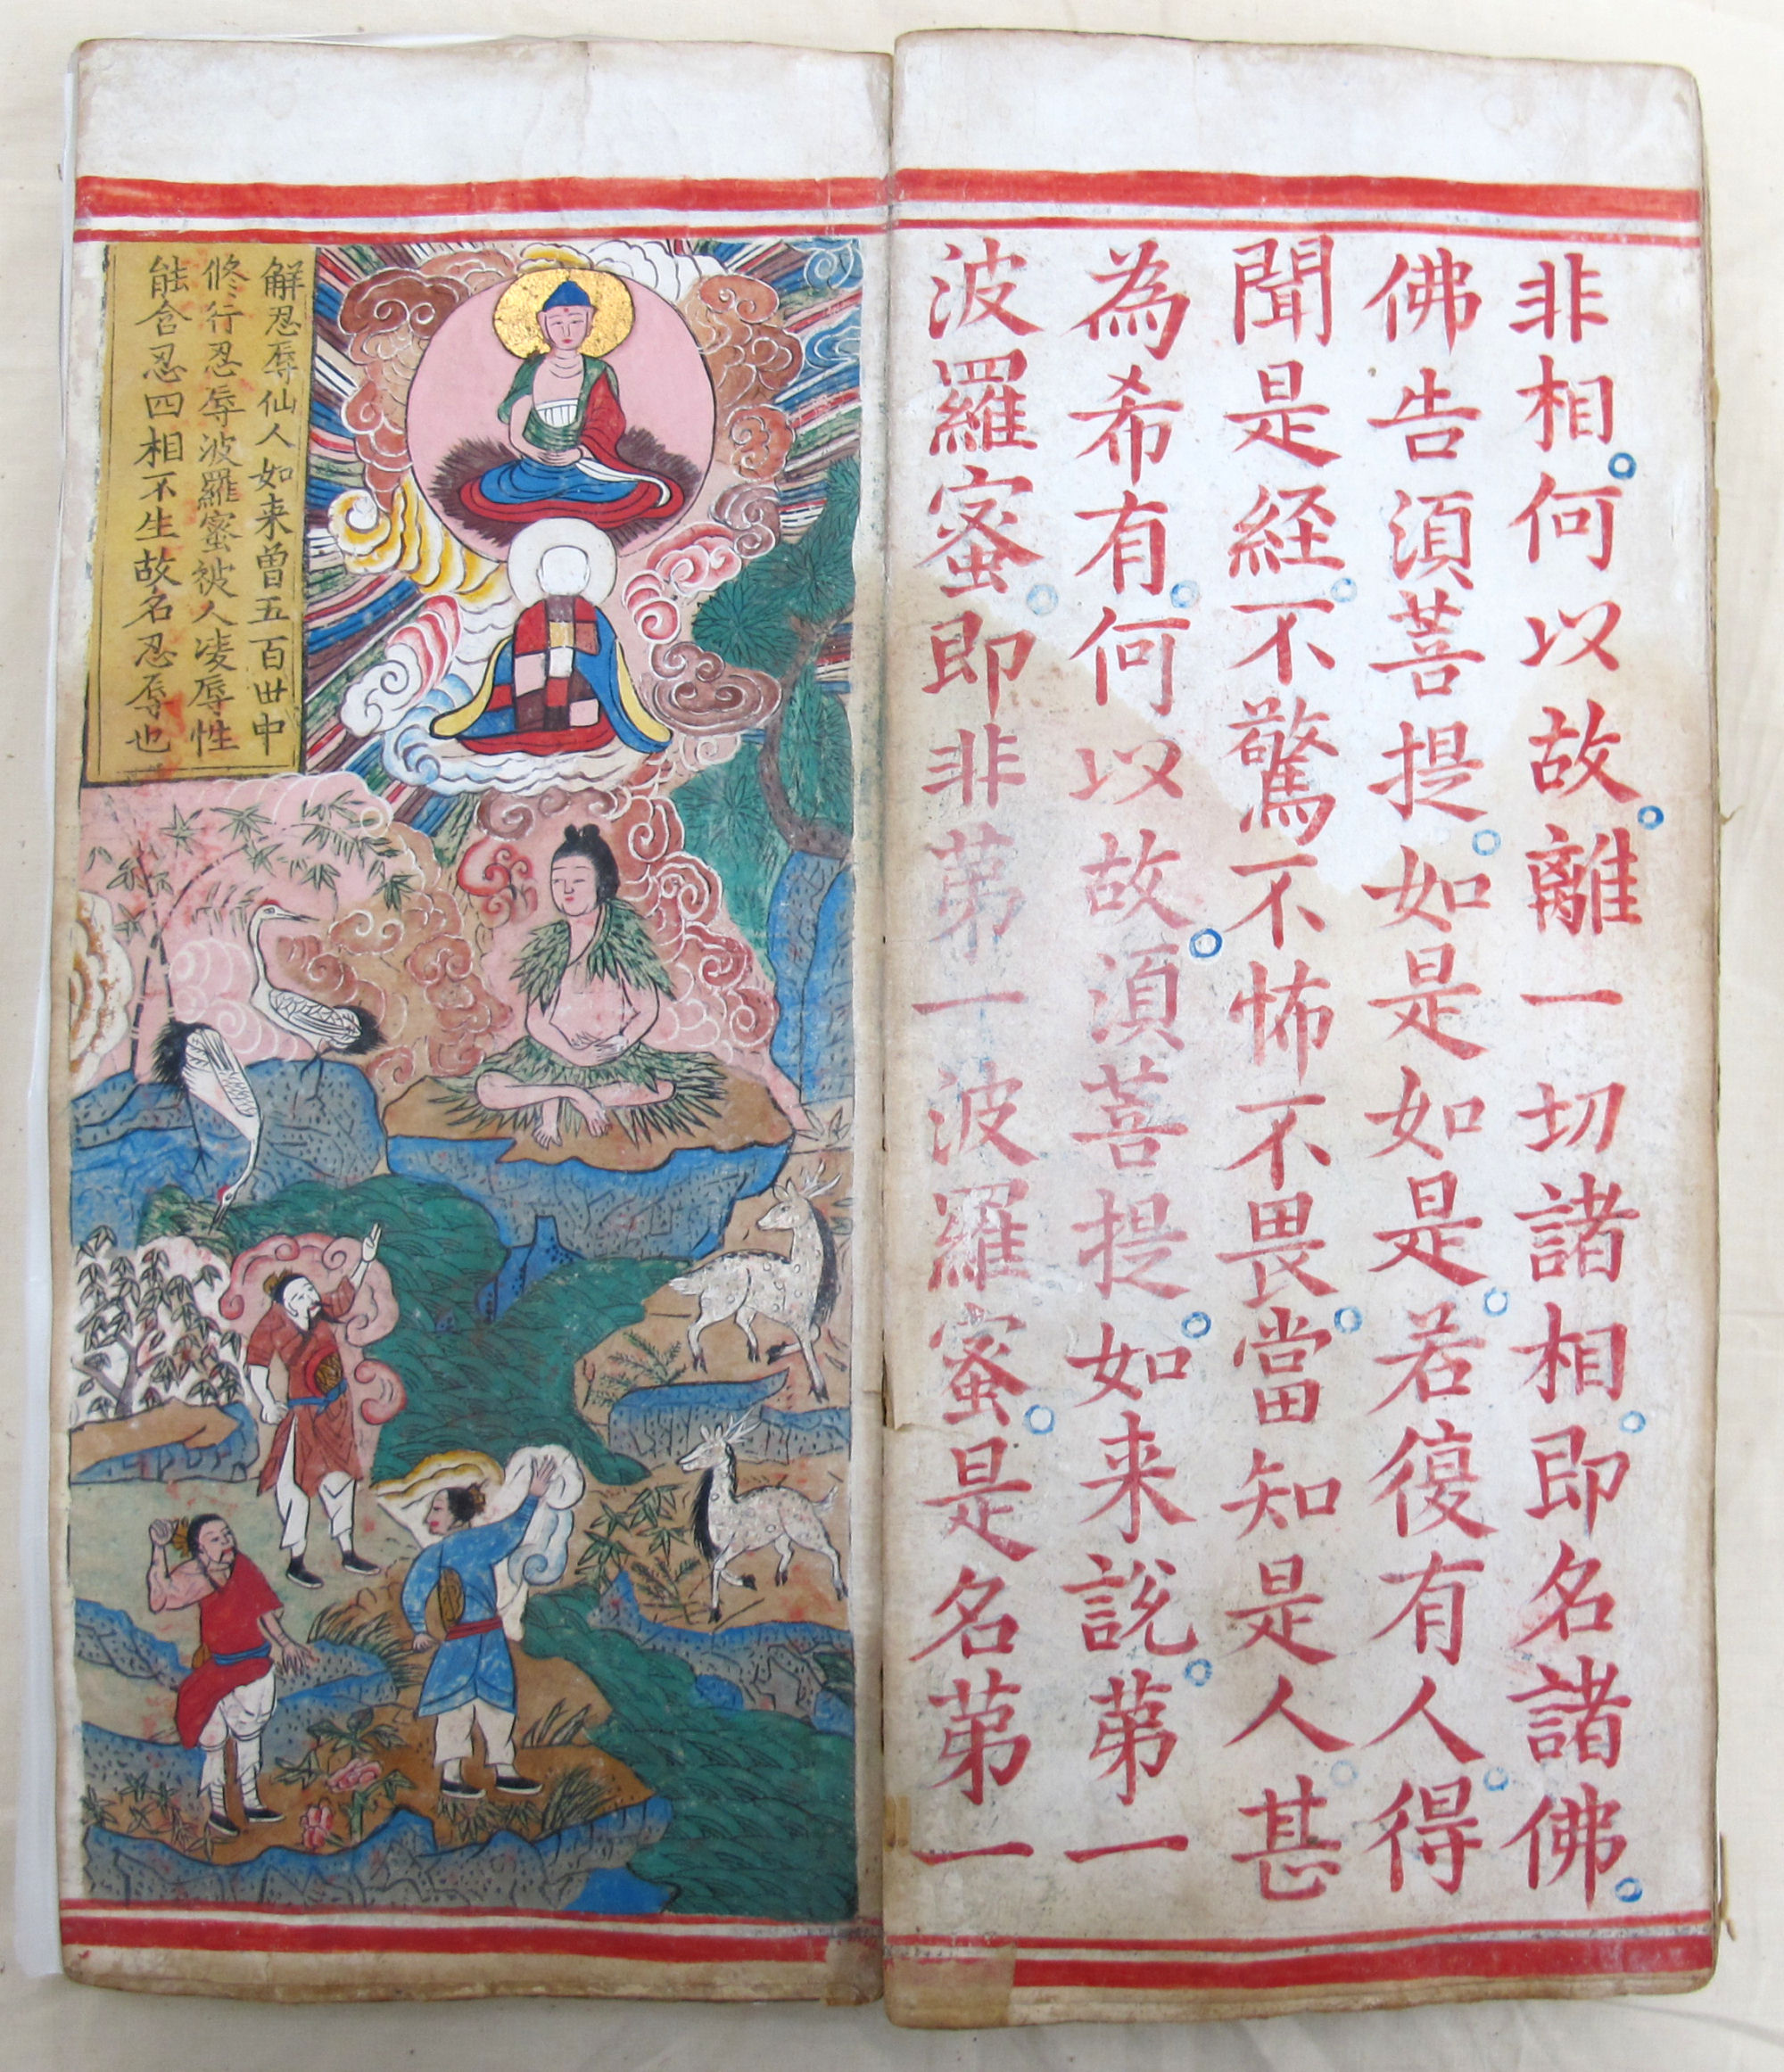 非相。何以故。離一切諸相。即名諸佛。
佛告須菩提。如是如是。若復有人。得
聞是経。不驚不怖不畏。當知是人。甚
為希有。何以故。須菩提。如来說。苐一
波羅蜜。即非苐一波羅蜜。是名苐一
解忍辱仙人如来曽五百丗中
修行忍辱波羅蜜被人凌辱性
能含忍四相不生故名忍辱也